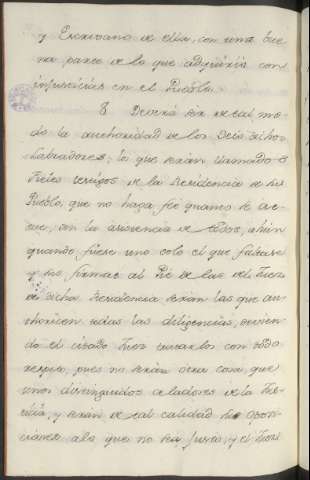 y Escrivano de ella, con una bue
na parte de lo que adquiria con
injusticias en el Pueblo.
8. Deverá ser de tal mo
do la authoridad de los Seis dichos
Labradores, lo que serán llamados
Fieles testigos de la Residencia de su
Pueblo, que no haga fée quanto se ac
tue, sin la asistencia de todos, ahun
quando fuese uno solo el que faltase
y sus firmas al Pié de las del Juez
de dicha Residencia serán las que au
thoricen todas las diligencias, devien
do el citado Juez tratarlos con todo
respeto, pues no serán otra cosa, que
unos distinguidos celadores de la Jus
ticia, y serán de tal calidad sus oposi
ciones a lo que no sea justo, y el Juez